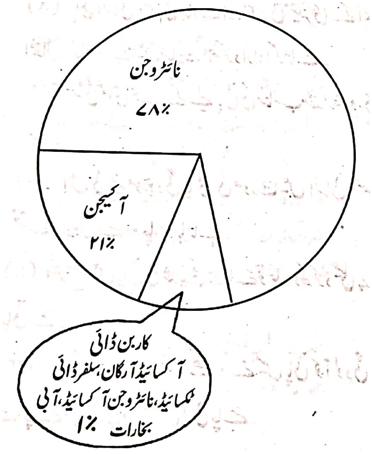 نائٹروجن
۷۸٪
آکسیجن
۲۱٪
کاربن ڈائی
آکسائیڈ، آرگان، سلفر ڈائی
آکسائیڈ، نائٹروجن آکسائیڈ، آبی
بخارات ۱٪